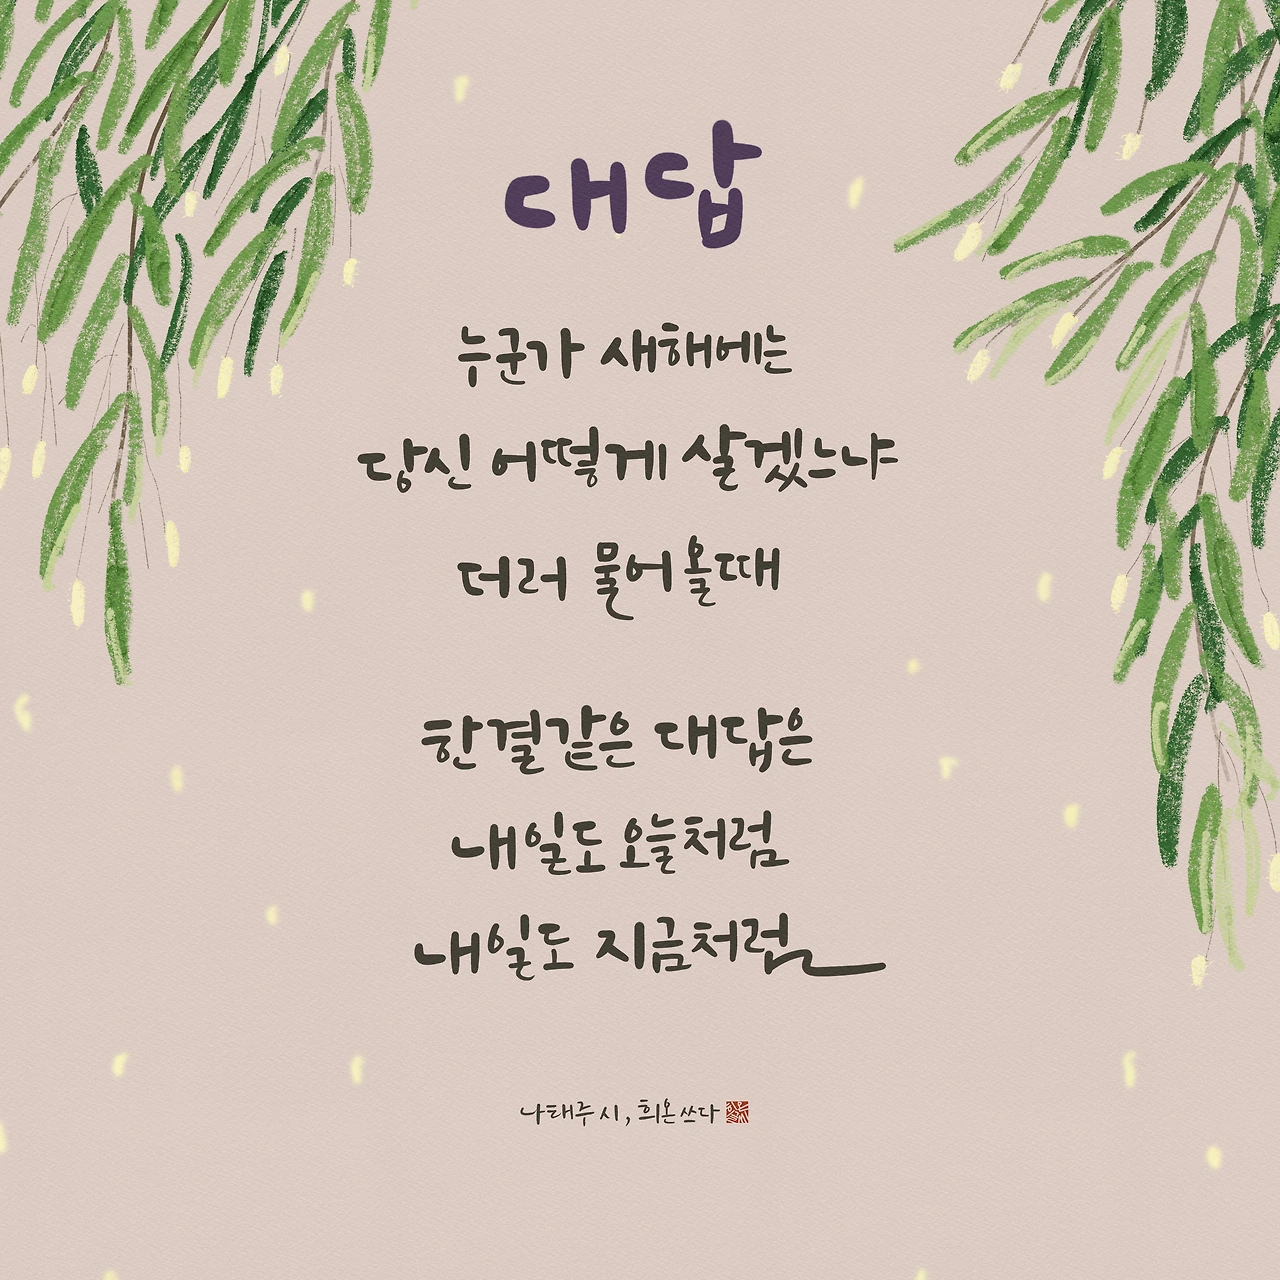 대답
누군가 새해에는
당신 어떻게 살겠느냐
더러 물어올때
한결같은 대답은
내일도 오늘처럼
내일도 지금처럼
나태주 시, 희온 쓰다